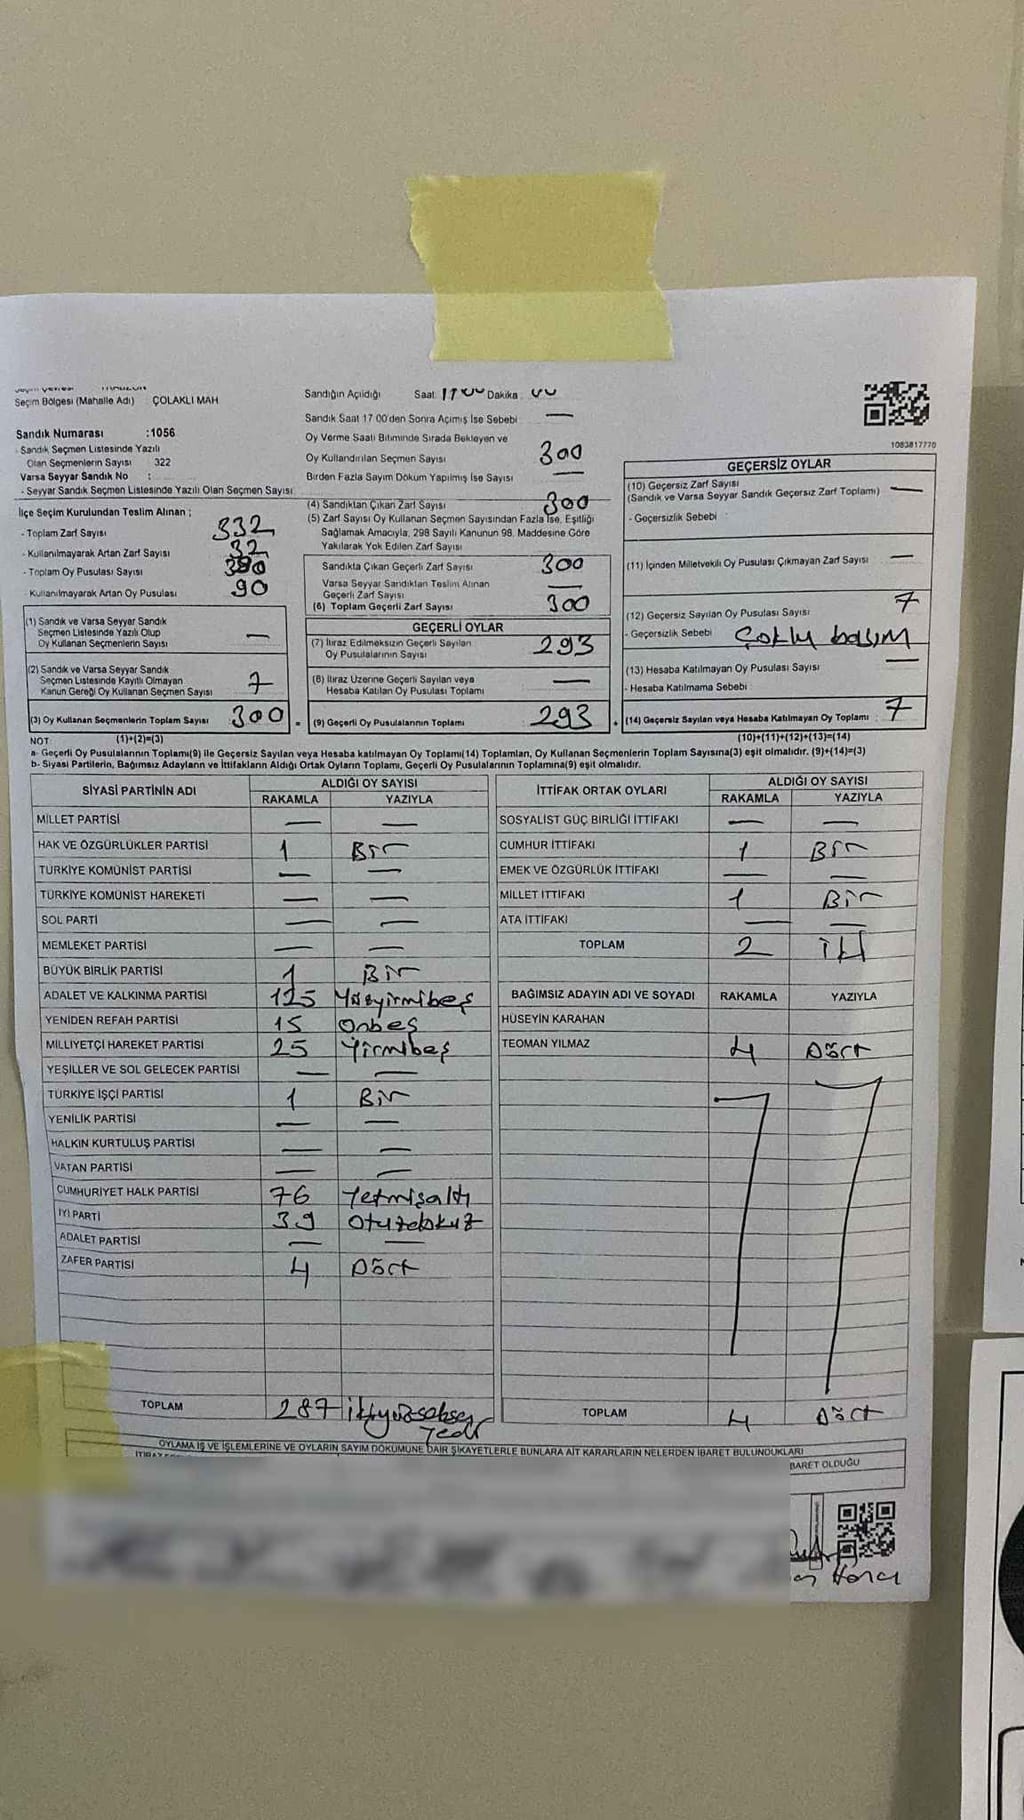 Seçim Bölgesi (Mahalle Adı) : ÇOLAKLI MAH
Sandık Numarası :1056
- Sandık Seçmen Listesinde Yazılı
Olan Seçmenlerin Sayısı : 322
Varsa Seyyar Sandık No :
- Seyyar Sandık Seçmen Listesinde Yazılı Olan Seçmen Sayısı:
İlçe Seçim Kurulundan Teslim Alınan ;
- Toplam Zarf Sayısı 332
- Kullanılmayarak Artan Zarf Sayısı 32
- Toplam Oy Pusulası Sayısı
Kullanılmayarak Artan Oy Pusulası 90
(1) Sandık ve Varsa Seyyar Sandık
Seçmen Listesinde Yazılı Olup
Oy Kullanan Seçmenlerin Sayısı —
(2) Sandık ve Varsa Seyyar Sandık
Seçmen Listesinde Kayıtlı Olmayan
Kanun Gereği Oy Kullanan Seçmen Sayısı 7
(3) Oy Kullanan Seçmenlerin Toplam Sayısı 300
Sandığın Açıldığı Saat : Dakika :
Sandık Saat 17 00'den Sonra Açımış İse Sebebi : —
Oy Verme Saati Bitiminde Sırada Bekleyen ve
Oy Kullandırılan Seçmen Sayısı 300
Birden Fazla Sayım Döküm Yapılmış İse Sayısı : —
(4) Sandıktan Çıkan Zarf Sayısı 300
(5) Zarf Sayısı Oy Kullanan Seçmen Sayısından Fazla İse, Eşitliği
Sağlamak Amacıyla, 298 Sayılı Kanunun 98. Maddesine Göre
Yakılarak Yok Edilen Zarf Sayısı
Sandıkta Çıkan Geçerli Zarf Sayısı 300
Varsa Seyyar Sandıktan Teslim Alınan
Geçerli Zarf Sayısı —
(6) Toplam Geçerli Zarf Sayısı 300
GEÇERLİ OYLAR
(7) İtiraz Edilmeksizin Geçerli Sayılan
Oy Pusulalarının Sayısı 293
(8) İtiraz Üzerine Geçerli Sayılan veya
Hesaba Katılan Oy Pusulası Toplamı —
(9) Geçerli Oy Pusulalarının Toplamı 293
1083817770
GEÇERSİZ OYLAR
(10) Geçersiz Zarf Sayısı
(Sandık ve Varsa Seyyar Sandık Geçersiz Zarf Toplamı) —
- Geçersizlik Sebebi :
(11) İçinden Milletvekili Oy Pusulası Çıkmayan Zarf Sayısı —
(12) Geçersiz Sayılan Oy Pusulası Sayısı 7
- Geçersizlik Sebebi : Çoklu basım
(13) Hesaba Katılmayan Oy Pusulası Sayısı —
- Hesaba Katılmama Sebebi :
(14) Geçersiz Sayılan veya Hesaba Katılmayan Oy Toplamı : 7
NOT: (1)+(2)=(3) (10)+(11)+(12)+(13)=(14)
a- Geçerli Oy Pusulalarının Toplamı(9) ile Geçersiz Sayılan veya Hesaba katılmayan Oy Toplamı(14) Toplamları, Oy Kullanan Seçmenlerin Toplam Sayısına(3) eşit olmalıdır. (9)+(14)=(3)
b- Siyasi Partilerin, Bağımsız Adayların ve İttifakların Aldığı Ortak Oyların Toplamı, Geçerli Oy Pusulalarının Toplamına(9) eşit olmalıdır.
SİYASİ PARTİNİN ADI ALDIĞI OY SAYISI
RAKAMLA YAZIYLA
MİLLET PARTİSİ — —
HAK VE ÖZGÜRLÜKLER PARTİSİ 1 Bir
TÜRKİYE KOMÜNİST PARTİSİ — —
TÜRKİYE KOMÜNİST HAREKETİ — —
SOL PARTİ — —
MEMLEKET PARTİSİ — —
BÜYÜK BİRLİK PARTİSİ 1 Bir
ADALET VE KALKINMA PARTİSİ 125 Yüzyirmibeş
YENİDEN REFAH PARTİSİ 15 Onbeş
MİLLİYETÇİ HAREKET PARTİSİ 25 Yirmibeş
YEŞİLLER VE SOL GELECEK PARTİSİ — —
TÜRKİYE İŞÇİ PARTİSİ 1 Bir
YENİLİK PARTİSİ — —
HALKIN KURTULUŞ PARTİSİ — —
VATAN PARTİSİ — —
CUMHURİYET HALK PARTİSİ 76 Yetmişaltı
İYİ PARTİ 39 Otuzdokuz
ADALET PARTİSİ — —
ZAFER PARTİSİ 4 Dört
TOPLAM 287 ikiyüzseksen
Yedi
İTTİFAK ORTAK OYLARI ALDIĞI OY SAYISI
RAKAMLA YAZIYLA
SOSYALİST GÜÇ BİRLİĞİ İTTİFAKI — —
CUMHUR İTTİFAKI 1 Bir
EMEK VE ÖZGÜRLÜK İTTİFAKI — —
MİLLET İTTİFAKI 1 Bir
ATA İTTİFAKI — —
TOPLAM 2 iki
BAĞIMSIZ ADAYIN ADI VE SOYADI RAKAMLA YAZIYLA
HÜSEYİN KARAHAN
TEOMAN YILMAZ 4 Dört
TOPLAM 4 Dört
OYLAMA İŞ VE İŞLEMLERİNE VE OYLARIN SAYIM DÖKÜMÜNE DAİR ŞİKAYETLERLE BUNLARA AİT KARARLARIN NELERDEN İBARET BULUNDUKLARI
BARET OLDUĞU